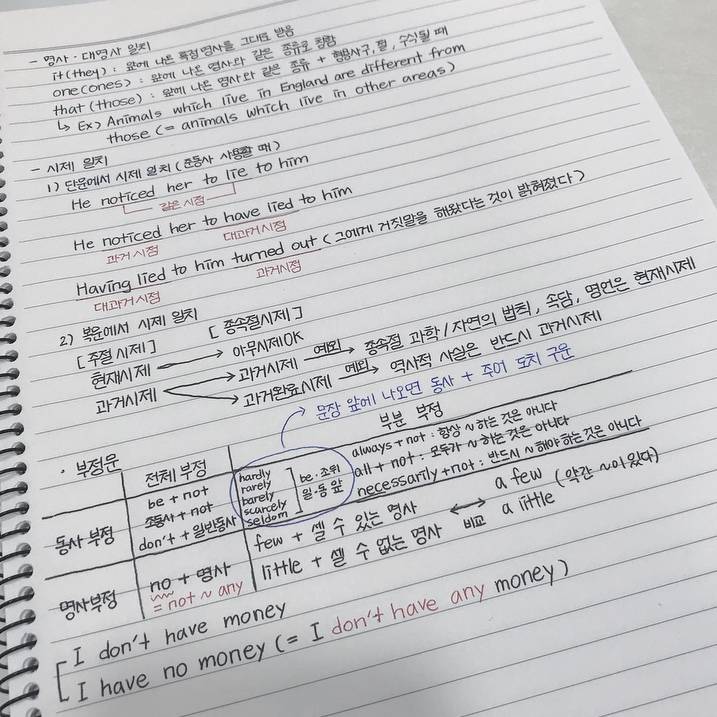 - 명사·대명사 일치
it(they) : 앞에 나온 특정명사를 그대로 받음
one(ones) : 앞에 나온 명사와 같은 종류로 칭함
that(those) : 앞에 나온 명사와 같은 종류 + 형용사구, 절, 수식될 때
↳ Ex) Animals which live in England are different from
those (= animals which live in other areas)
- 시제 일치
1) 단문에서 시제 일치 (준동사 사용할 때)
He noticed her to lie to him
같은 시점
He noticed her to have lied to him
과거시점 대과거시점
Having lied to him turned out (그에게 거짓말을 해왔다는 것이 밝혀졌다)
대과거시점 과거시점
2) 복문에서 시제 일치
[주절 시제] [종속절시제]
현재시제 → 아무시제OK
과거시제 → 과거시제 예외→ 종속절 과학/자연의 법칙, 속담, 명언은 현재시제
→ 과거완료시제 예외→ 역사적 사실은 반드시 과거시제
→ 문장 앞에 나오면 동사 + 주어 도치 구문
· 부정문 전체 부정 부분 부정
동사 부정
be + not
조동사 + not
don't + 일반동사
hardly
rarely
barely
scarcely
seldom
be·조뒤
일·동 앞
always + not : 항상 ~하는 것은 아니다
all + not : 모두가 ~하는 것은 아니다
necessarily + not : 반드시 ~해야 하는 것은 아니다
명사부정
no + 명사
= not ~ any
few + 셀 수 있는 명사 ↔ a few (약간 ~이 있다)
little + 셀 수 없는 명사 비교 a little
I don't have money
I have no money (= I don't have any money)